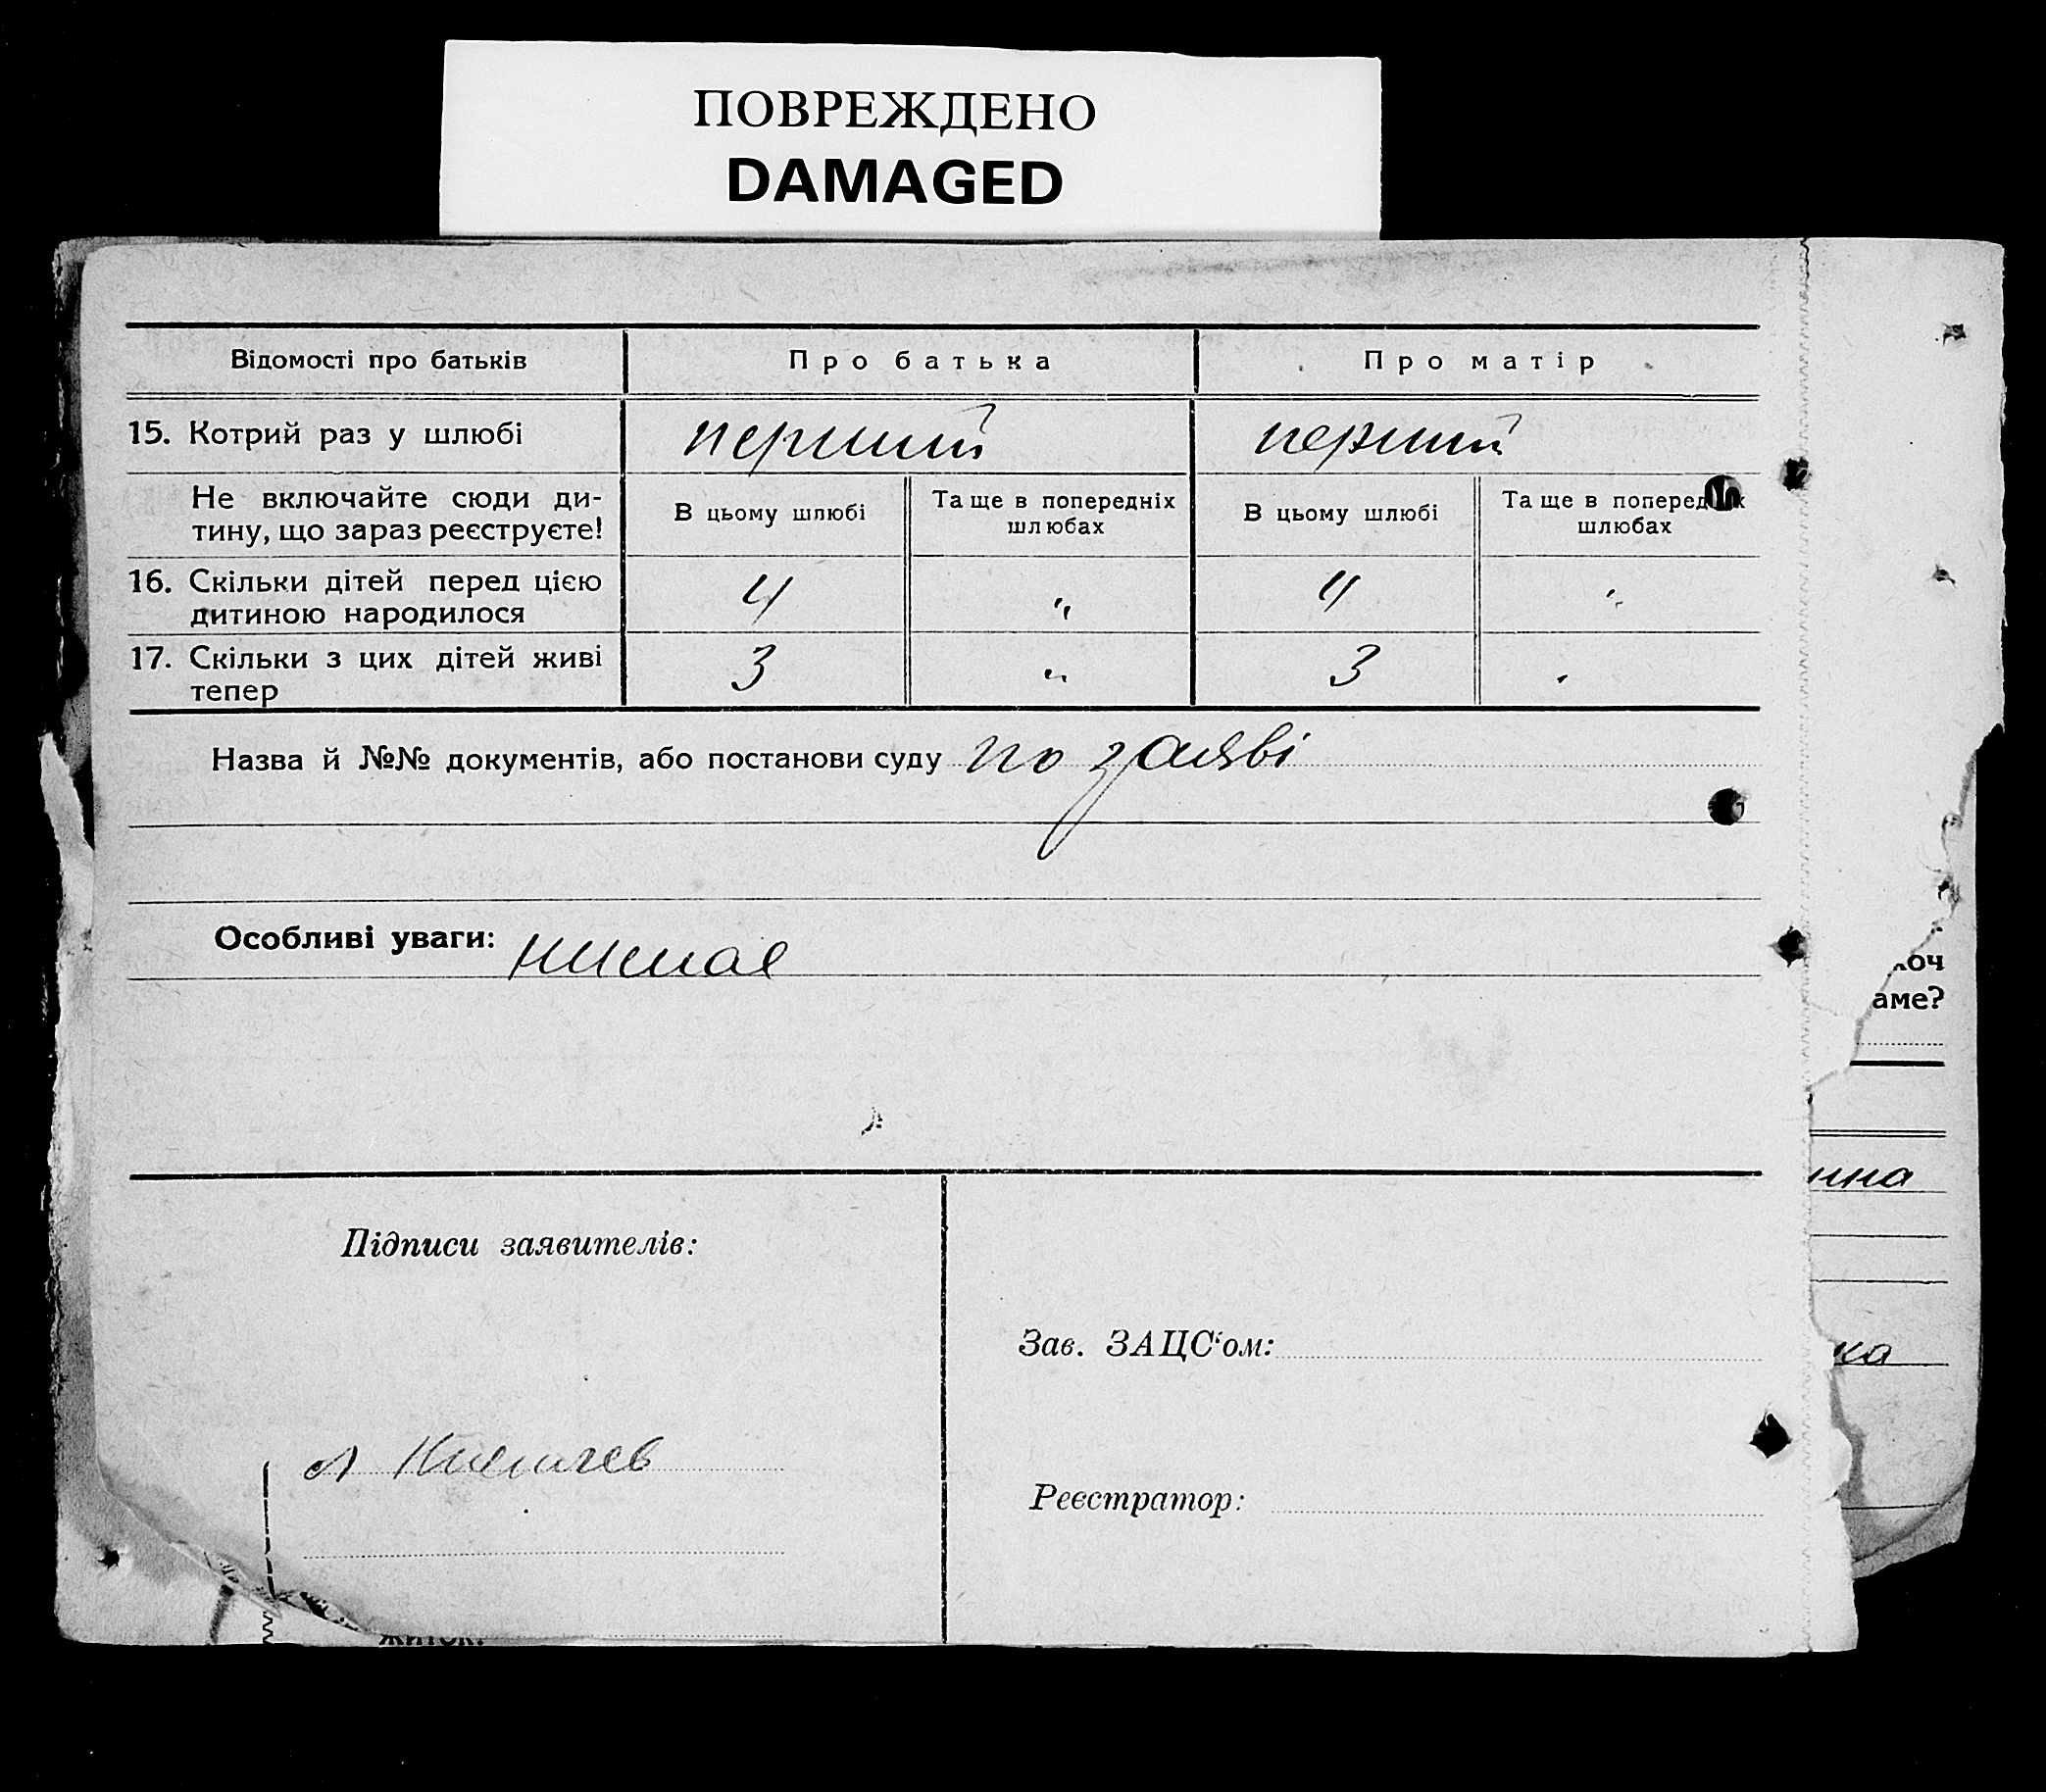 ПОВРЕЖДЕНО
DAMAGED
Відомості про батьків
Про батька
Про матір
15. Котрий раз у шлюбі
перший
перший
Не включайте сюди ди-
тину, що зараз реєструєте!
В цьому шлюбі
Та ще в попередніх
шлюбах
В цьому шлюбі
Та ще в попередніх
шлюбах
16. Скільки дітей перед цією
дитиною народилося
4
"
4
"
17. Скільки з цих дітей живі
тепер
3
"
3
Назва й №№ документів, або постанови суду по заяві
Особливі уваги: нимае
хоч
аме?
нна
Підписи заявителів:
Зав. ЗАЦС‘ом:
ка
Реєстратор: